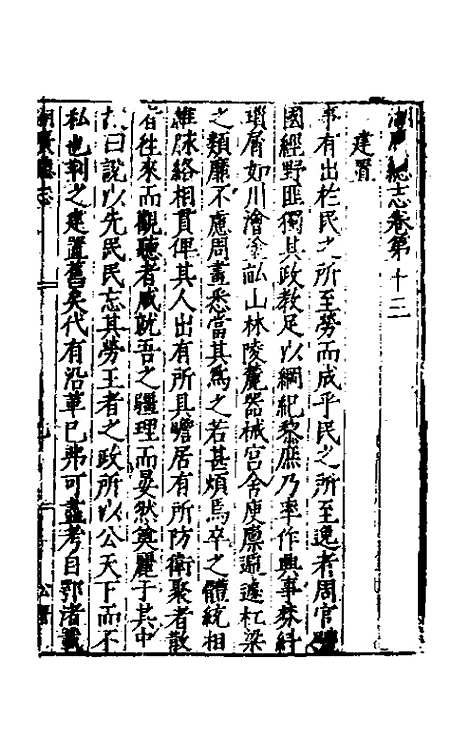 湖廣總志卷第十二
建置
事有出於民之所至勞而成乎民之所至逸者周官體
國經野匪獨其政教足以綱紀黎庶乃率作興事
瑣屑如川澮山林陵麓器械宮舍庾廩遽杠梁
之類靡不應周畫悉當其為之若甚煩焉卒之體統相
維脉絡相貫俾其人出有所具瞻居有所防衛聚者散
者往來而觀聽者咸就吾之疆理而晏然奠麗于其中
故曰說以先民民忘其勞王者之政所以公天下而不
私也荆之建置舊矣代有沿革已弗可盡考自鄂渚
湖廣總志